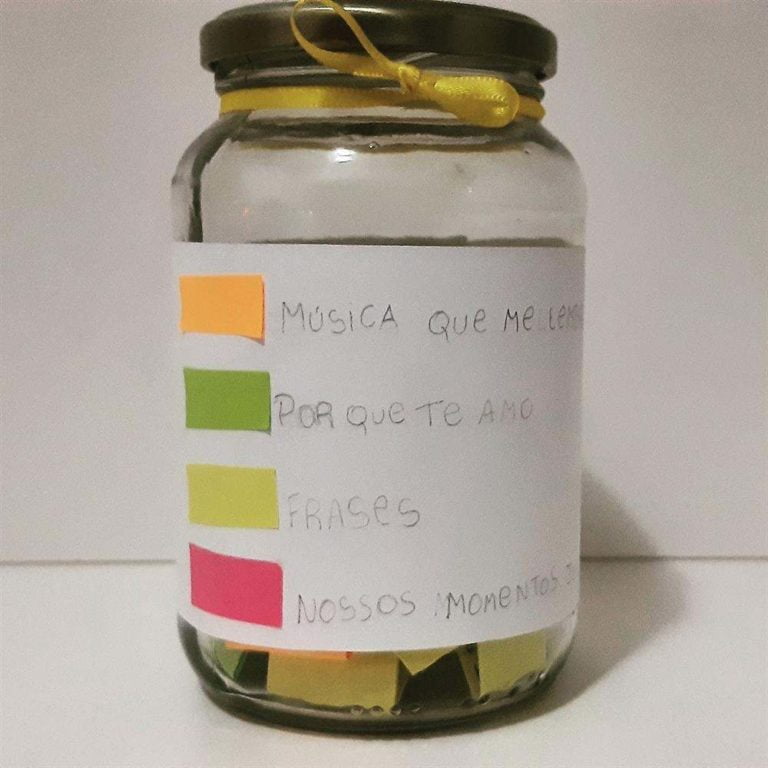 MÚSICA QUE ME
POR QUE TE AMO
FRASES
NOSSOS MOMENTOS